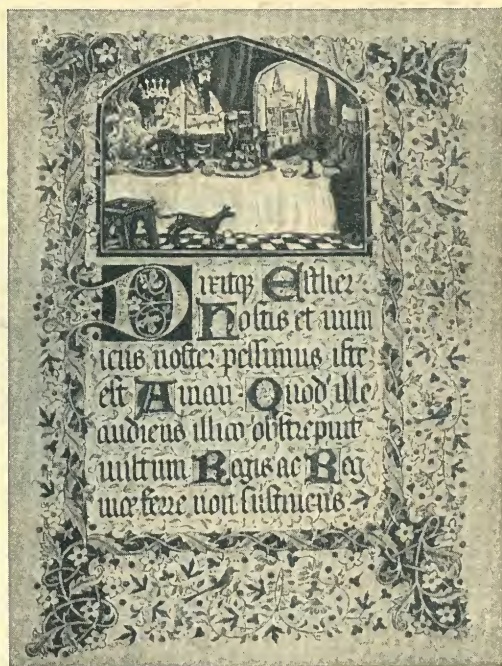 Dixitqꝫ Esther:
Hostis et inim
icus noster pessimus iste
est Aman · Quod ille
audiens illico obstupuit
vultum Regis ac Reg
inæ ferre non sustinens